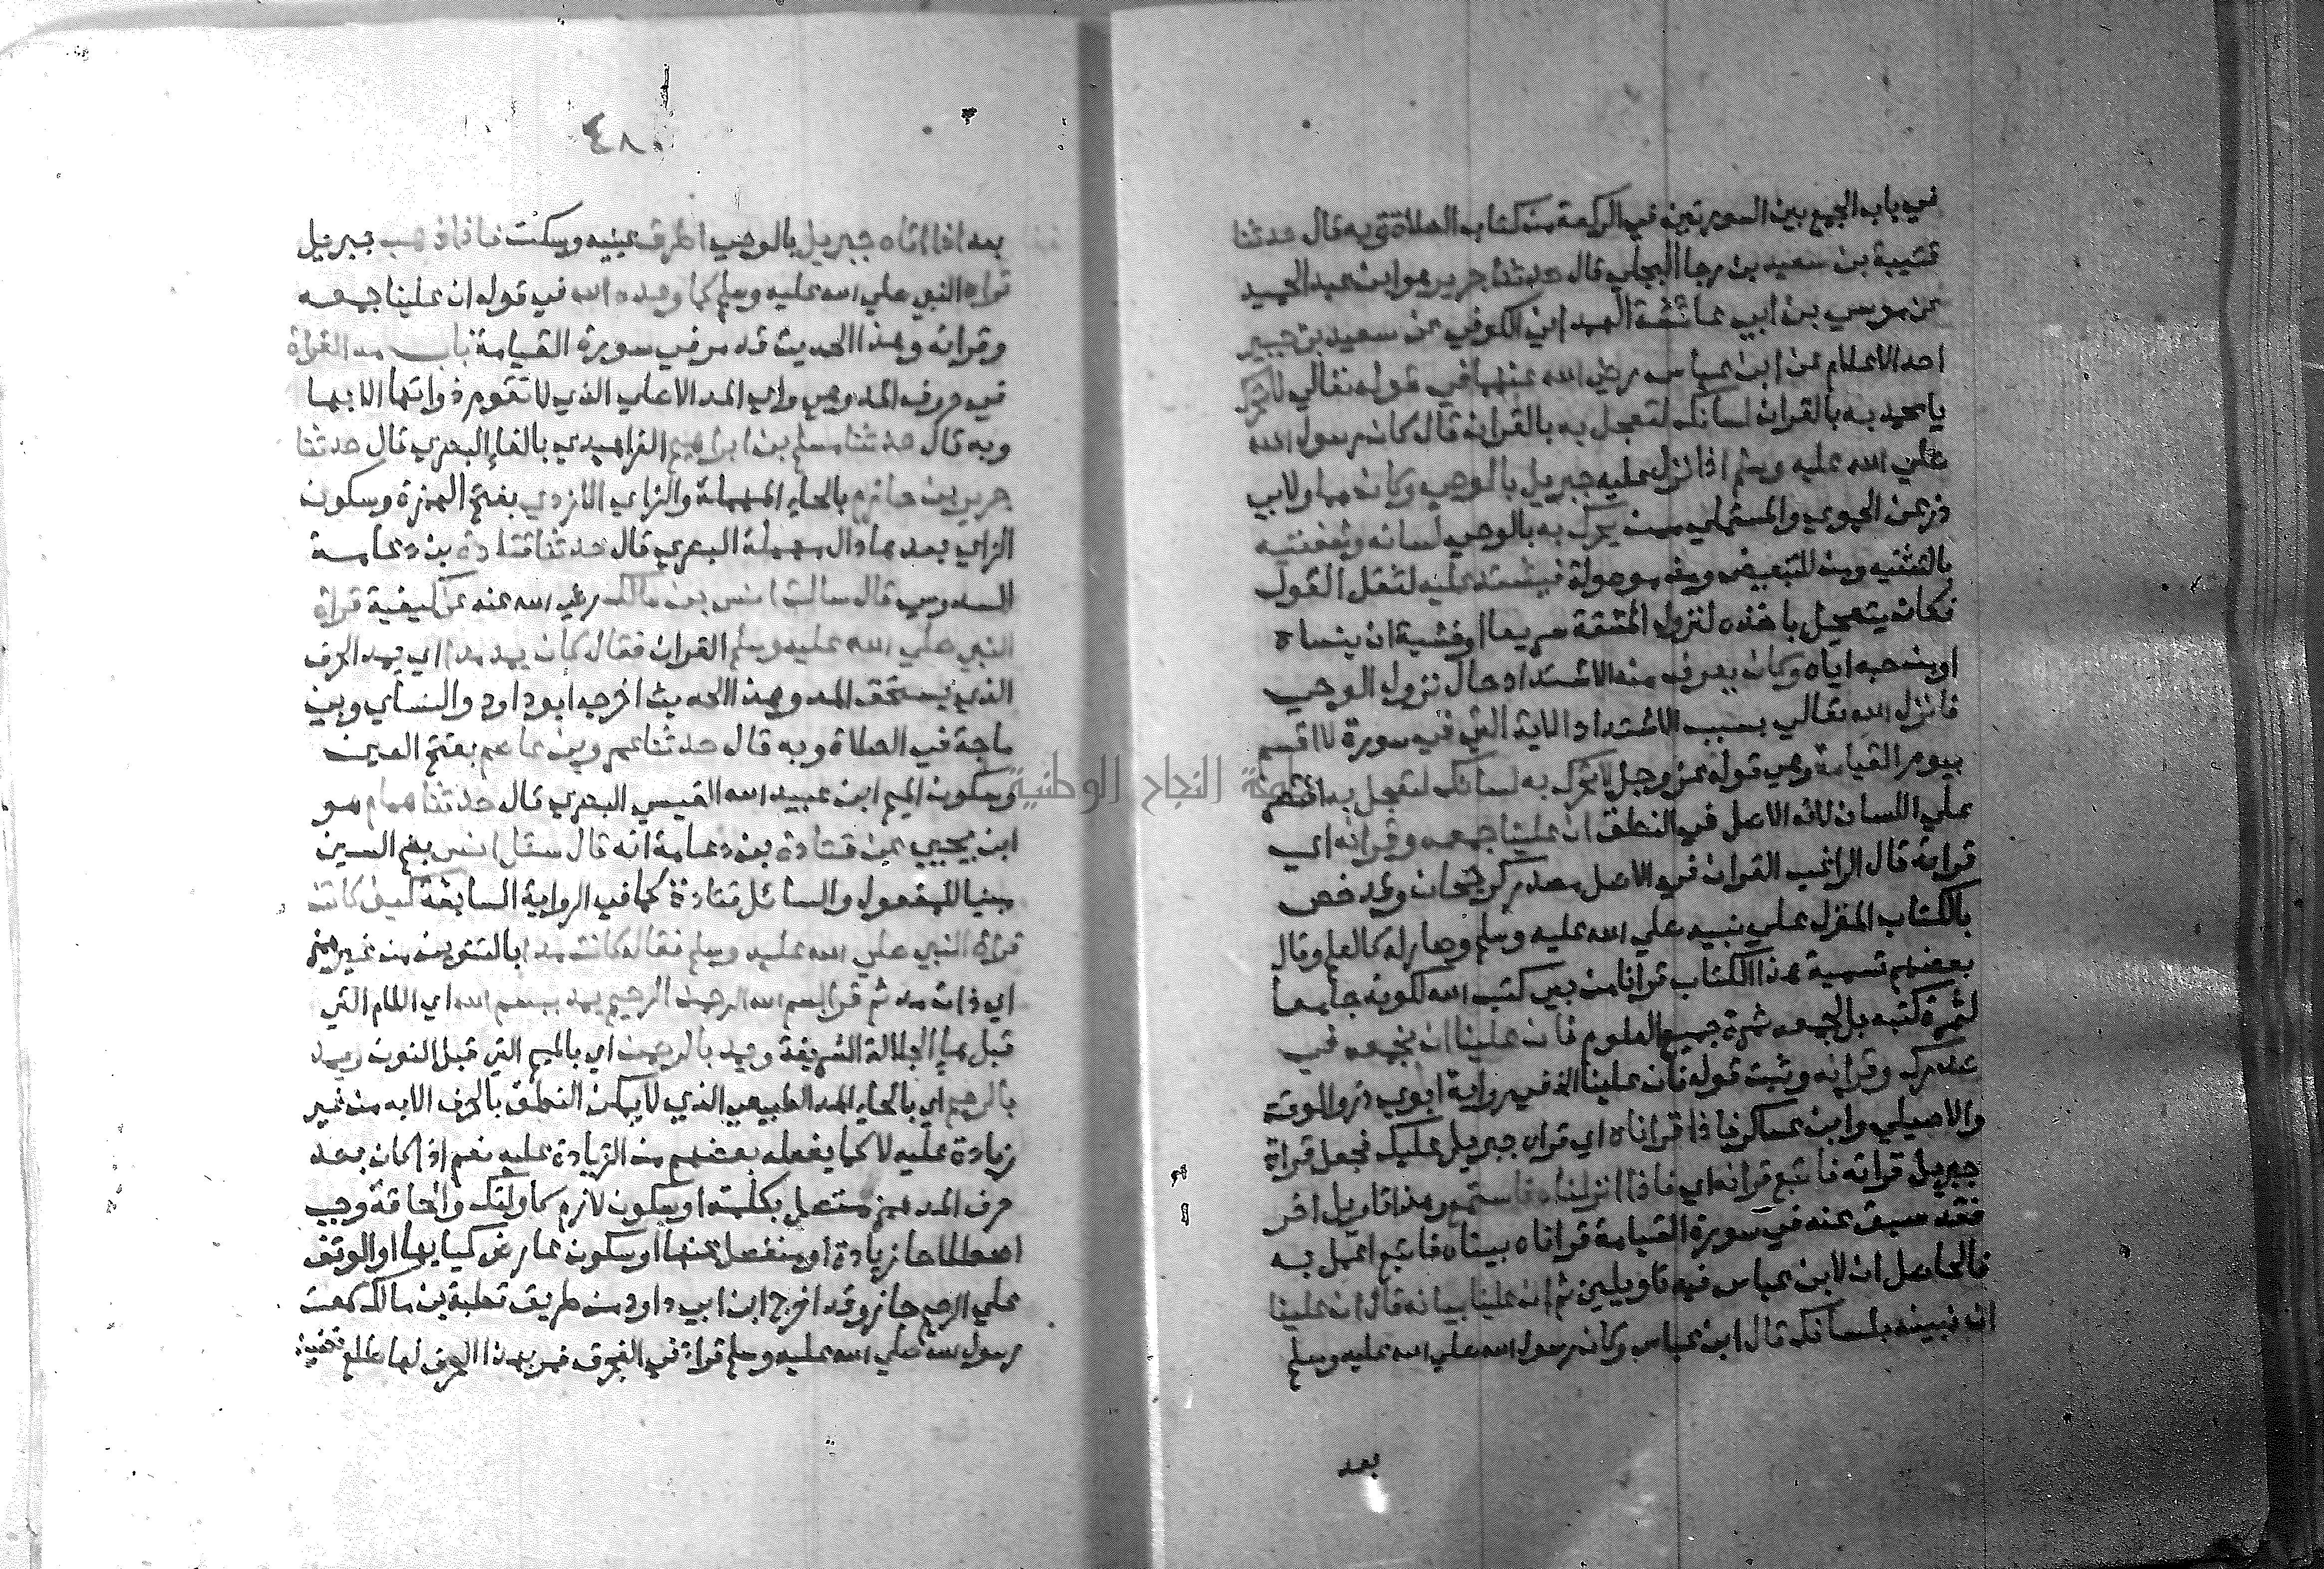 في باب الجمع بين السورتين في الركعة من كتاب الصلاة وبه قال حدثنا
قتيبة بن سعيد بن رجا البجلي قال حدثنا جرير هو ابن عبد الحميد
عن موسي بن ابي عائشة الهمداني الكوفي عن سعيد بن جبير
احد الاعلام عن ابن عباس رضي الله عنهما في قوله تعالي لا تحرك
يا محمد به بالقران لسانك لتعجل به بالقران قال كان رسول الله
صلي الله عليه وسلم اذا نزل عليه جبريل بالوحي وكان مما ولابي
ذر عن الحموي والمستملي ممن يحرك به بالوحي لسانه وشفتيه
بالتثنيه ومن للتبعيض ومن موصولة فيشتد عليه لثقل القول
فكان يتعجل باخذه لنزول المشقة سريعا او خشية ان ينساه
او من حبه اياه وكان يعرف منه الاشتداد حال نزول الوحي
فانزل الله تعالي بسبب الاشتداد الاية التي في سورة لا اقسم
بيوم القيامة وهي قوله عز وجل لا تحرك به لسانك لتعجل به اقتصر
علي اللسان لانه الاصل في النطق ان علينا جمعه وقرانه اي
قراته قال الراغب القران في الاصل مصدر كرجحان وقد خص
بالكتاب المنزل علي نبيه صلي الله عليه وسلم وصار له كالعلم وقال
بعضهم تسمية هذا الكتاب قرانا من بين كتب الله لكونه جامعا
لثمرة كتبه بل لجمعه ثمرة جميع العلوم فان علينا ان نجمعه في
صدرك وقرانه وثبت قوله فان علينا الخ في رواية ابوي ذر والوقت
والاصيلي وابن عساكر فاذا قراناه اي قراه جبريل عليك فجعل قراة
جبريل قراته فاتبع قرانه اي فاذا انزلناه فاستمع وهذا تاويل اخر
فقد سبق عنه في سورة القيامة قراناه بيناه فاتبع اعمل به
فالحاصل ان لابن عباس فيه تاويلين ثم ان علينا بيانه قال ان علينا
ان نبينه بلسانك قال ابن عباس وكان رسول الله صلي الله عليه وسلم
بعد
٤٨
بعد اذا اتاه جبريل بالوحي اطرق عينيه وسكت فاذا ذهب جبريل
قراه النبي صلي الله عليه وسلم كما وعده الله في قوله ان علينا جمعه
وقرانه وهذا الحديث قد مر في سورة القيامة باب مد القراة
في حروف المد وهي واي المد الاصلي الذي لا تقوم ذواتها الا بها
وبه قال حدثنا مسلم بن ابراهيم الفراهيدي بالفاء البصري قال حدثنا
جرير بن حازم بالحاء المهملة والزاي الازدي بفتح الهمزة وسكون
الزاي بعدها دال مهملة البصري قال حدثنا قتادة بن دعامة
السدوسي قال سالت انس بن مالك رضي الله عنه عن كيفية قراة
النبي صلي الله عليه وسلم القران فقال كان يمد مدا اي يمد الحرف
الذي يستحق المد وهذا الحديث اخرجه ابو داود والنسأي وبن
ماجة في الصلاة وبه قال حدثنا عمرو بن عاصم بفتح العين
وسكون الميم ابن عبيد الله القيسي البصري قال حدثنا همام هو
ابن يحيي عن قتادة بن دعامة انه قال سئل انس بضم السين
مبنيا للمفعول والسائل قتادة كما في الرواية السابقة كيف كانت
قراة النبي صلي الله عليه وسلم فقال كانت مدا بالتنوين من غير همز
اي ذات مد ثم قرا بسم الله الرحمن الرحيم يمد ببسم الله اي اللام التي
قبل هاء الجلالة الشريفة ويمد بالرحمن اي بالميم التي قبل النون ويمد
بالرحيم اي بالحاء المد الطبيعي الذي لا يمكن النطق بالحرف الا به من غير
زيادة عليه لا كما يفعله بعضهم من الزيادة عليه نعم اذا كان بعد
حرف المد همز متصل بكلمته او سكون لازم كاوليك والحاقة وجب
او منفصل عنها او سكون عارض كيا يها او الوقف
علي الرحيم جاز وقد اخرج ابن ابي داود من طريق قطبة بن مالك سمعت
رسول الله صلي الله عليه وسلم قراة في الفجر ق فمر بهذا الحرف لها طلع نضيد
جامعة النجاح الوطنية